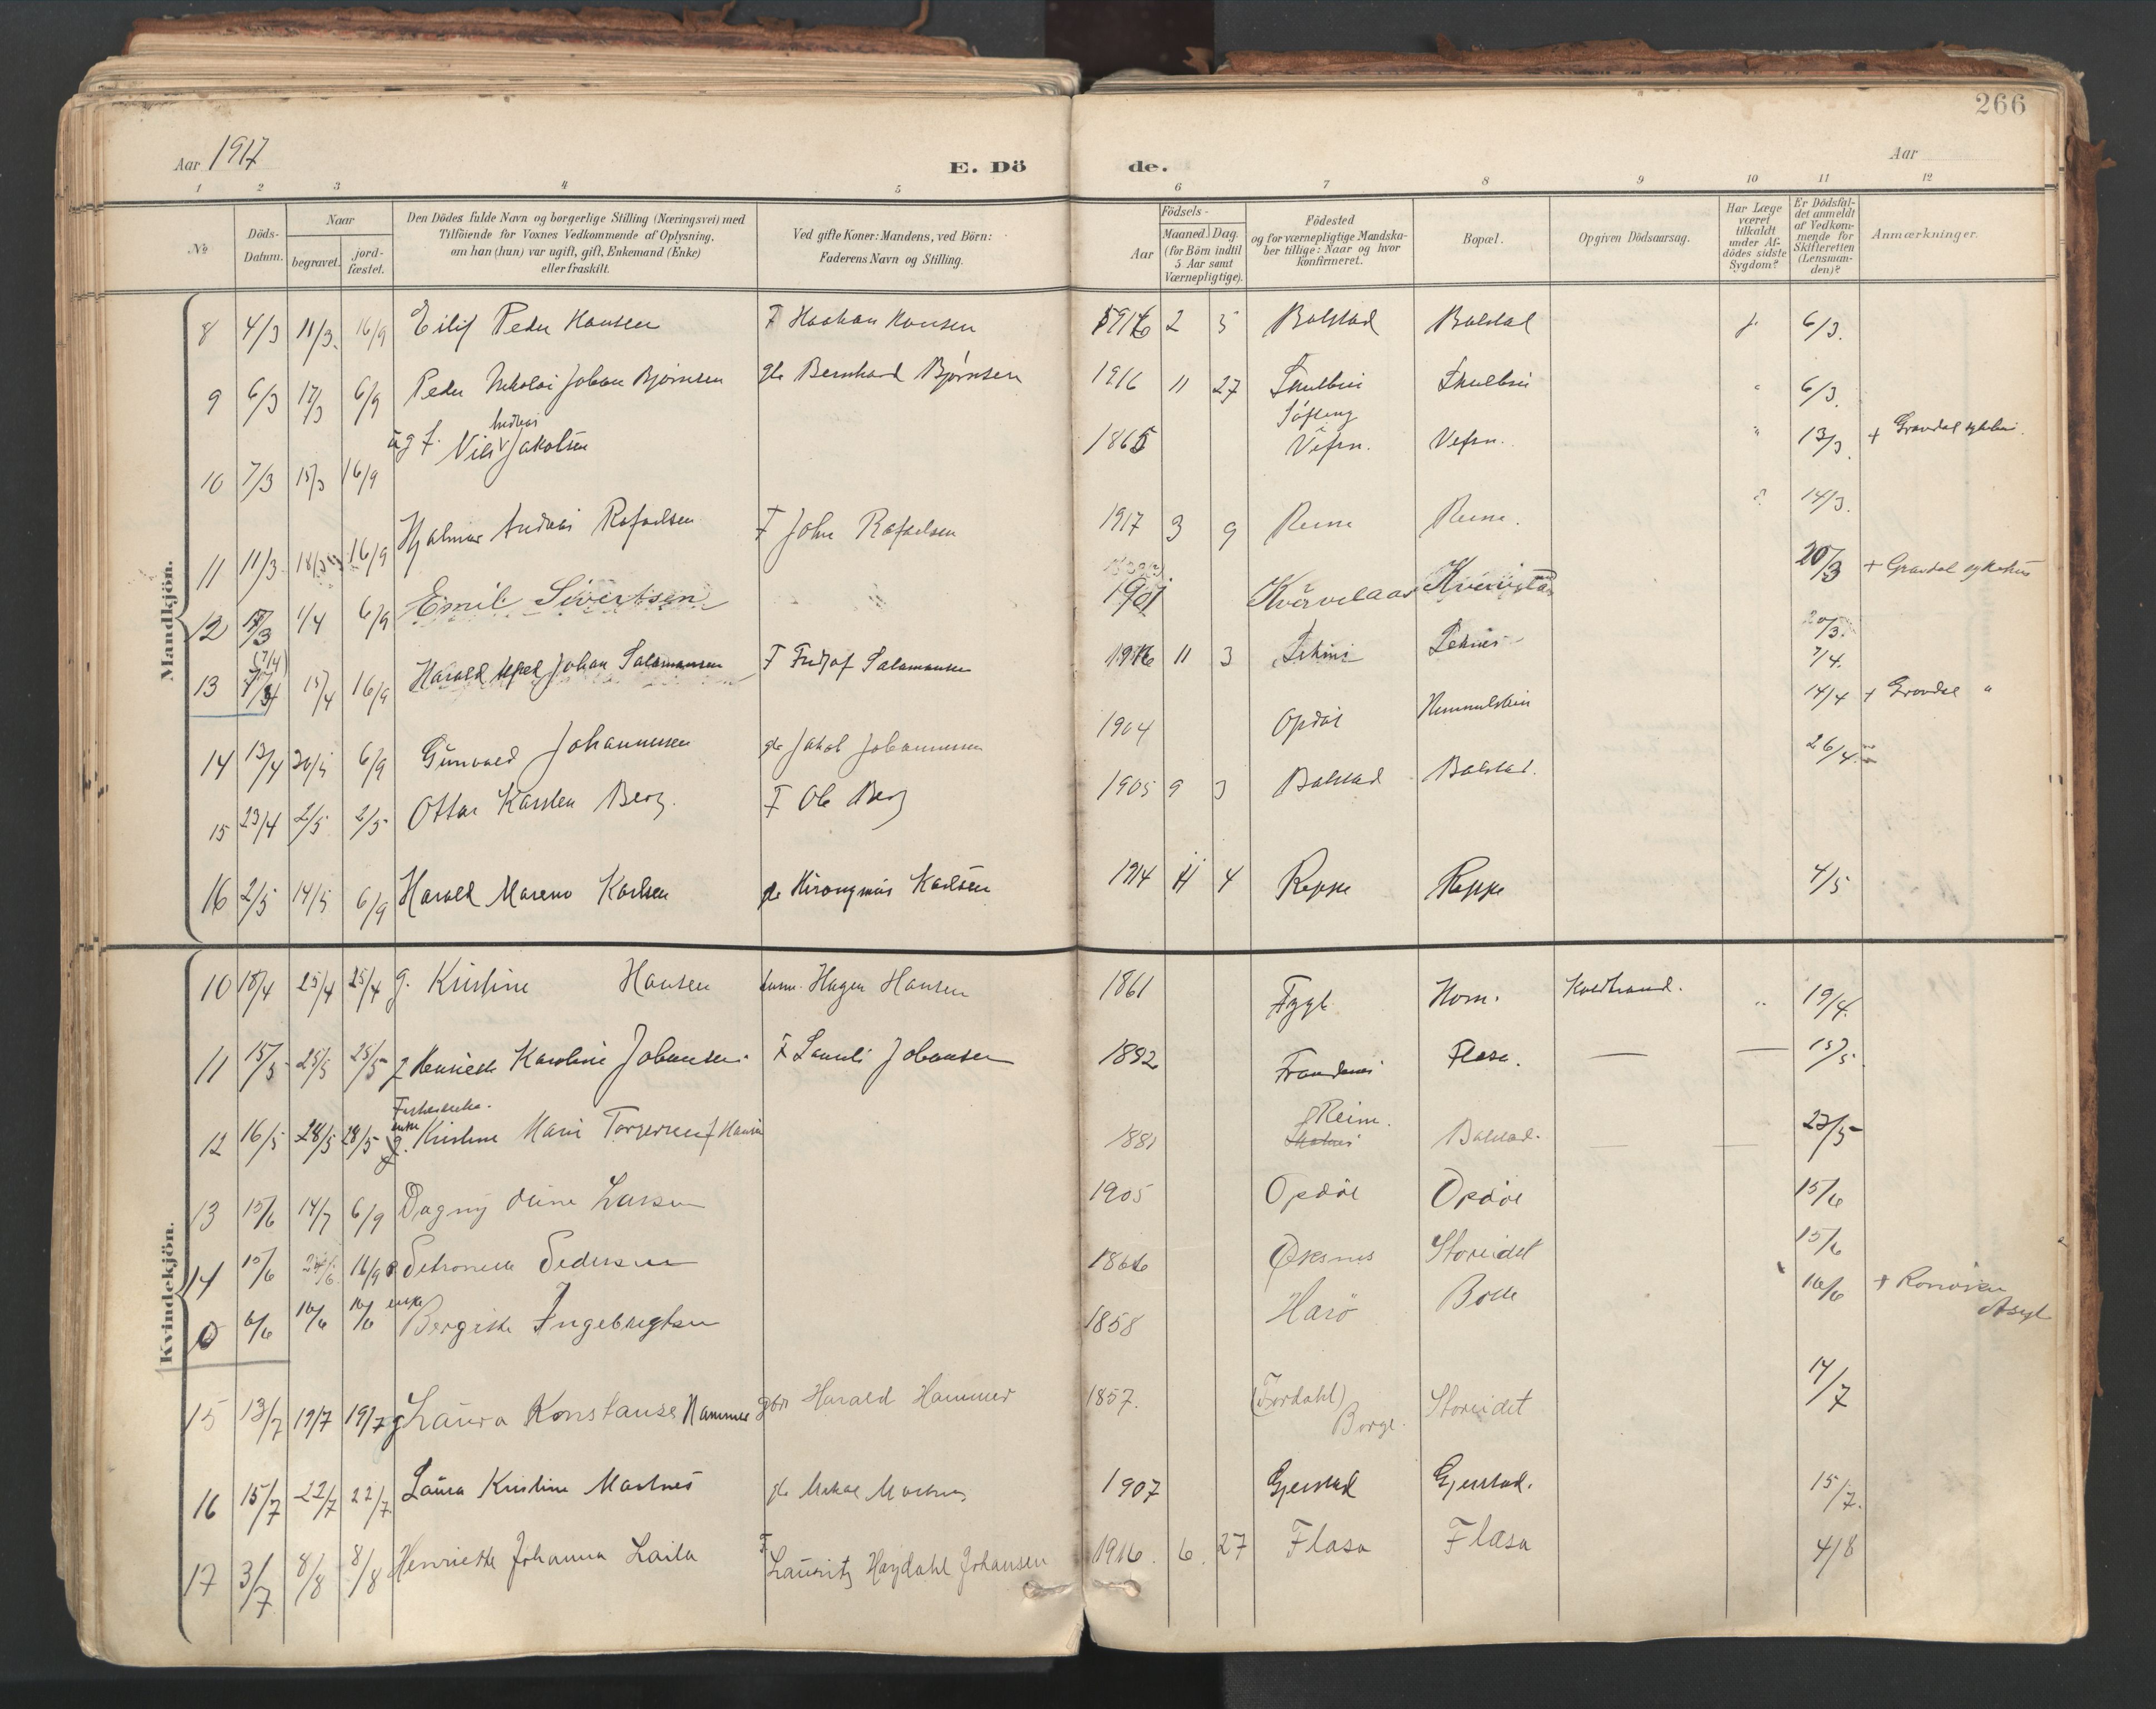 266
Aar 1917
E. Dö
de.
Aar
1 2 3 4 5 6 7 8 9 10 11 12
№
Döds-Datum.
Naar
begravet.
jord-fæstet.
Den Dödes fulde Navn og borgerlige Stilling (Næringsvei) med
Tilföiende for Voxnes Vedkommende af Oplysning,
om han (hun) var ugift, gift, Enkemand (Enke)
eller fraskilt.
Ved gifte Koner: Mandens, ved Börn:
Faderens Navn og Stilling.
Födsels-
Aar
Maaned. Dag.
(for Börn indtil
5 Aar samt
Værnepligtige).
Födested
og for værnepligtige Mandska-
ber tillige: Naar og hvor
konfirmeret.
Bopæl.
Opgiven Dödsaarsag.
Har Læge
været
tilkaldt
under Af-
dödes sidste
Sygdom?
Er Dödsfal-
det anmeldt
af Vedkom-
mende for
Skifteretten
(Lensman-
den)?
Anmærkninger.
Mandkjön.
8 4/3 11/3. 16/9 Eilif Peder Hansen F Haakan Hansen 1916 2 5 Balstad Balstad j. 6/3.
9 6/3 17/3 6/9 Peder Nikolai Johan Bjørnsen gbr Bernhard Bjørnsen 1916 11 27 6/3.
10 7/3 15/3 16/9 ug f. Nils Andreas Jakobsen 1865 Vefsn. Vefsn. " 13/3 +
11 11/3 18/3 16/9 Hjalmar Andreas Rafaelsen F John Rafaelsen 1917 3 9 Reine Reine. 14/3.
12 17/3 1/4 6/9 Emil Sivertsen 1901 20/3 + Gravdal sykehus
13 15/4 16/9 Harald Alfred Johan Salamonsen F Fridjof Salamonsen 1916 11 3 20/3. 7/4.
14 13/4 20/5 6/9 Gunvald Johannesen gbr Jakob Johannesen 1904 Opdøl 14/4 + Gravdal "
15 23/4 2/5 2/5 Ottar Karsten Berg. F Ole Berg 1905 9 3 Balstad Balstad. 26/4.
16 2/5 14/5 6/9 Harald Mareno Karlsen gbr Hironymus Karlsen 1914 11 4 Reppe Reppe 4/5
Kvindekjön.
10 18/4 25/4 25/4 g. Kristine Hansen Hagen Hansen 1861 Fygle Horn. Koldbrand. " 19/4.
11 15/5 25/5 25/5 Karoline Johansen F Johansen 1892 Flæsa. — — 15/5.
12 16/5 28/5 28/5 enke Kristine Marie Torgersen f Hansen 1881 Reine. Balstad. 23/5
13 15/6 14/7 6/9 Dagny Oline Larsen 1905 Opdøl Opdøl 15/6
14 15/6 16/9 Petronelle Pedersen 1866 Øksnes Storeidet 15/6
0 6/6 16/6 16/6 enke Bergitte Ingebrigtsen 1858 Harö Bolle 16/6 + Rønviken
Asyl
15 13/7 19/7 19/7 g Laura Konstanse Hammer gbr Harald Hammer 1857. (Fordahl)
Borge. Storeidet 14/7
16 15/7 22/7 22/7. Laura Kristine Mortnes gbr 1907 Gjerstad Gjerstad. 15/7.
17 3/7 8/8 8/8 Henriette Johanna Laila F Lauritz Høydahl Johansen 1916. 6. 27 Flæsa Flæsa 4/8